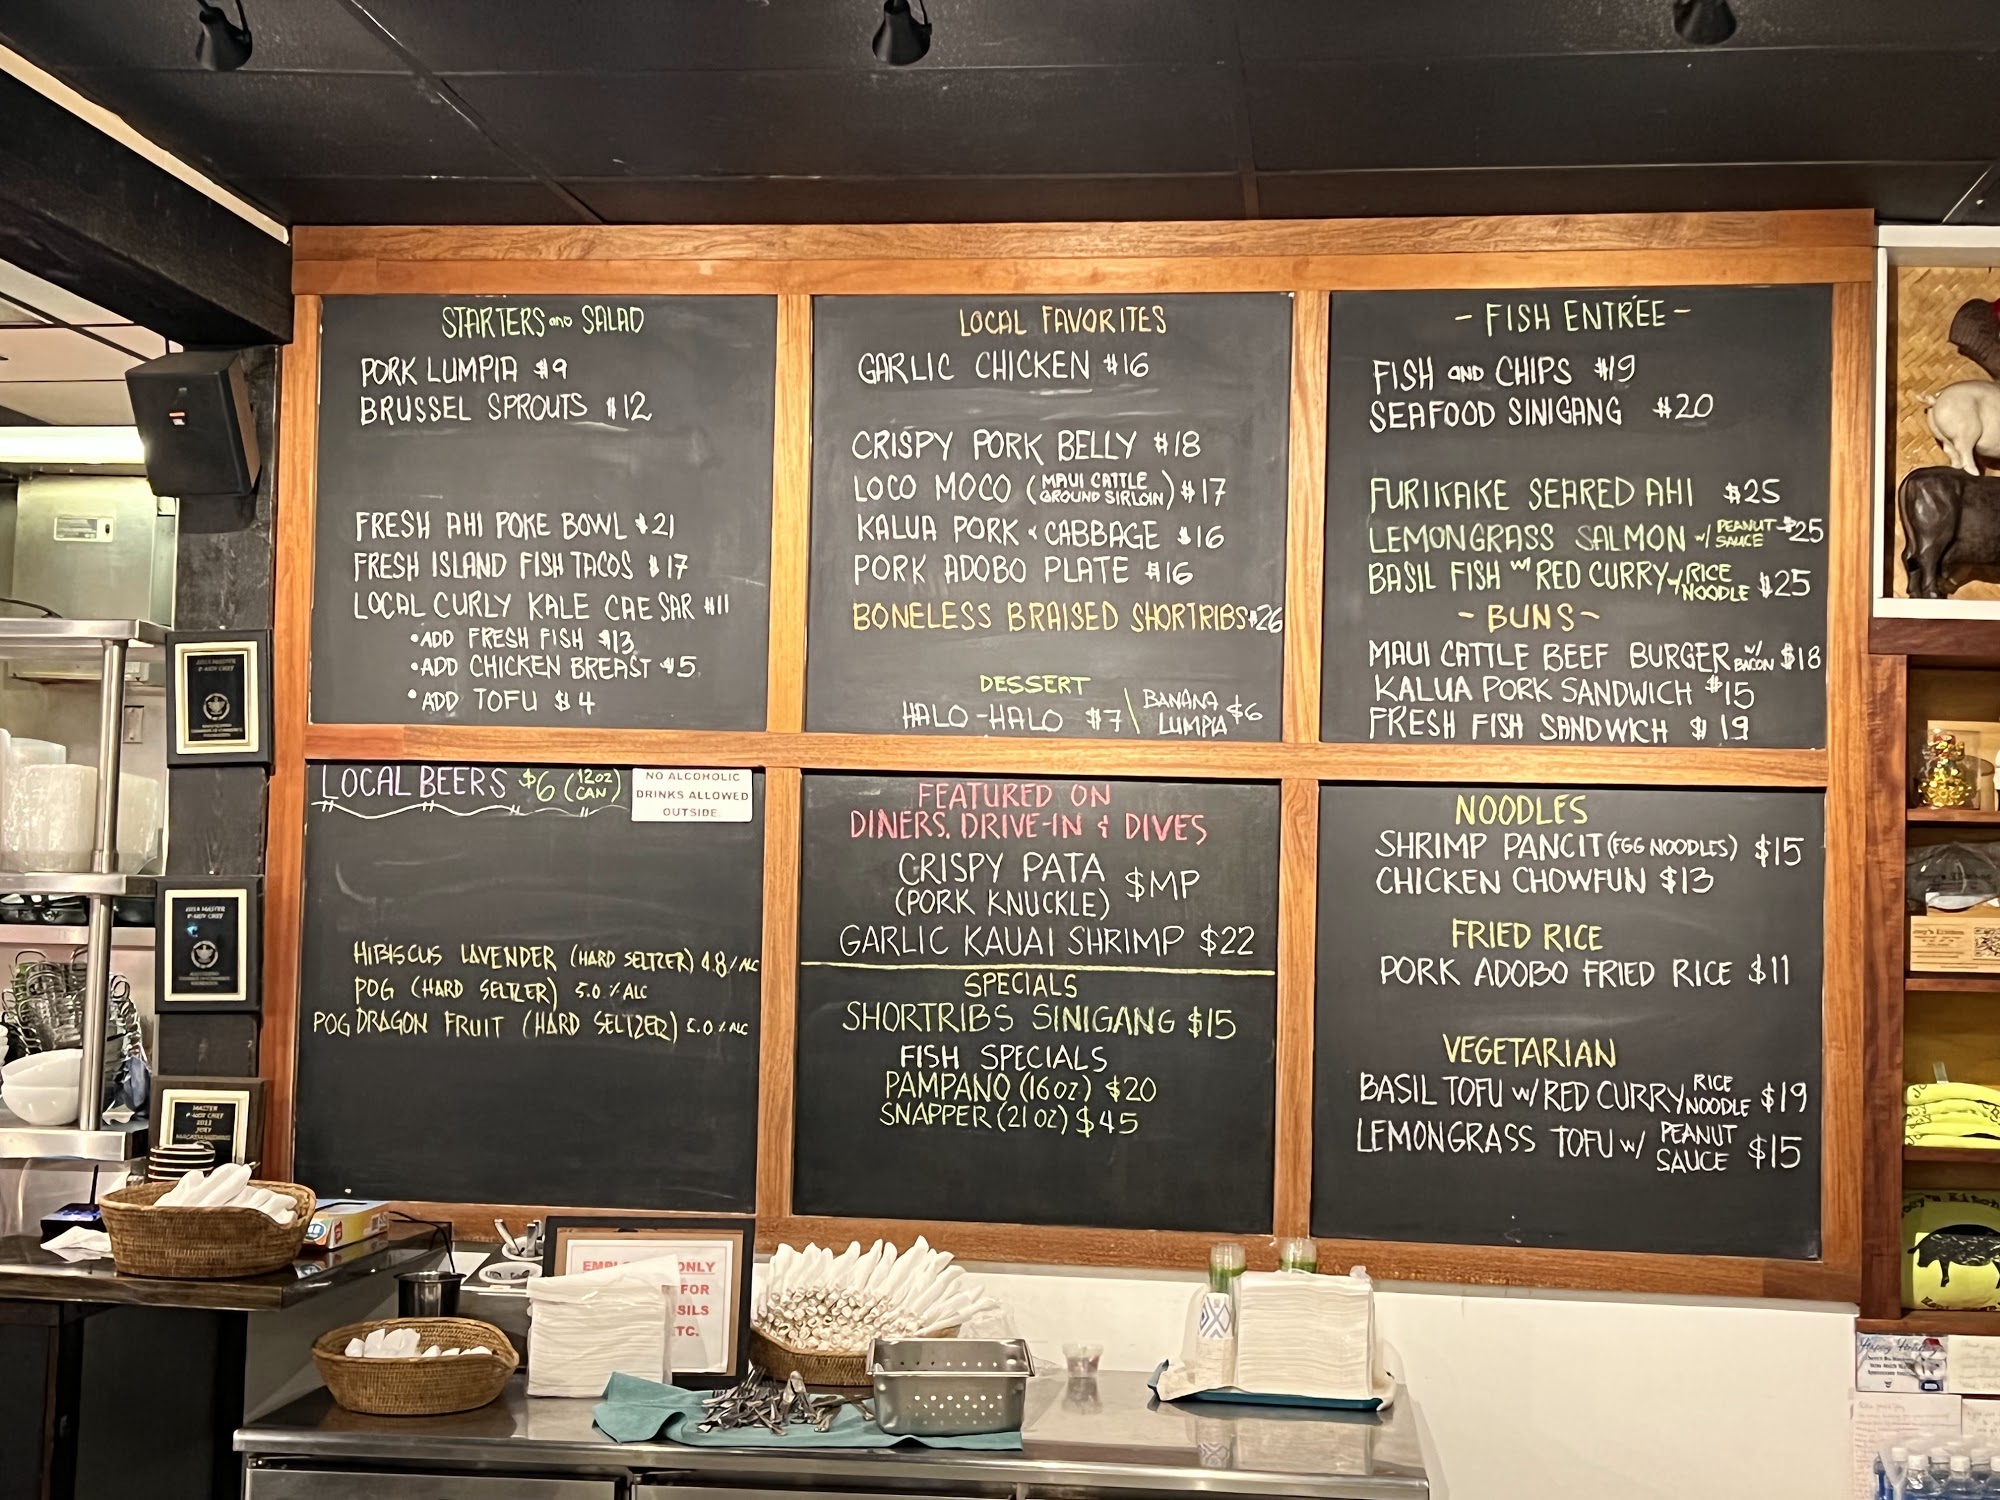 STARTERS AND SALAD
PORK LUMPIA $9
BRUSSEL SPROUTS $12
FRESH AHI POKE BOWL $21
FRESH ISLAND FISH TACOS $17
LOCAL CURLY KALE CAESAR $11
•ADD FRESH FISH $13
•ADD CHICKEN BREAST $5
•ADD TOFU $4
LOCAL FAVORITES
GARLIC CHICKEN $16
CRISPY PORK BELLY $18
LOCO MOCO (MAUI CATTLE GROUND SIRLOIN) $17
KALUA PORK & CABBAGE $16
PORK ADOBO PLATE $16
BONELESS BRAISED SHORTRIBS $26
DESSERT
HALO-HALO $7 \ BANANA LUMPIA $6
- FISH ENTRÉE -
FISH AND CHIPS $19
SEAFOOD SINIGANG $20
FURIKAKE SEARED AHI $25
LEMONGRASS SALMON w/ PEANUT SAUCE $25
BASIL FISH w/ RED CURRY w/ RICE NOODLE $25
- BUNS ~
MAUI CATTLE BEEF BURGER w/ BACON $18
KALUA PORK SANDWICH $15
FRESH FISH SANDWICH $19
LOCAL BEERS $6 (12oz CAN)
NO ALCOHOLIC
DRINKS ALLOWED
OUTSIDE.
HIBISCUS LAVENDER (HARD SELTZER) 4.8% ALC
POG (HARD SELTZER) 5.0% ALC
POG DRAGON FRUIT (HARD SELTZER) 5.0% ALC
FEATURED ON
DINERS, DRIVE-IN & DIVES
CRISPY PATA
(PORK KNUCKLE) $MP
GARLIC KAUAI SHRIMP $22
SPECIALS
SHORTRIBS SINIGANG $15
FISH SPECIALS
PAMPANO (16oz.) $20
SNAPPER (21oz) $45
NOODLES
SHRIMP PANCIT (EGG NOODLES) $15
CHICKEN CHOWFUN $13
FRIED RICE
PORK ADOBO FRIED RICE $11
VEGETARIAN
BASIL TOFU w/ RED CURRY RICE NOODLE $19
LEMONGRASS TOFU w/ PEANUT SAUCE $15
ONLY
FOR